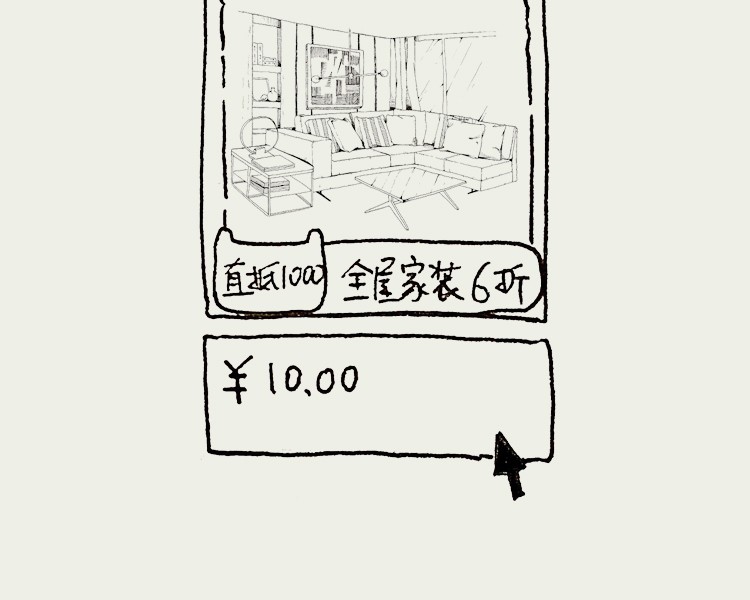 直抵1000
全屋家装6折
¥10.00